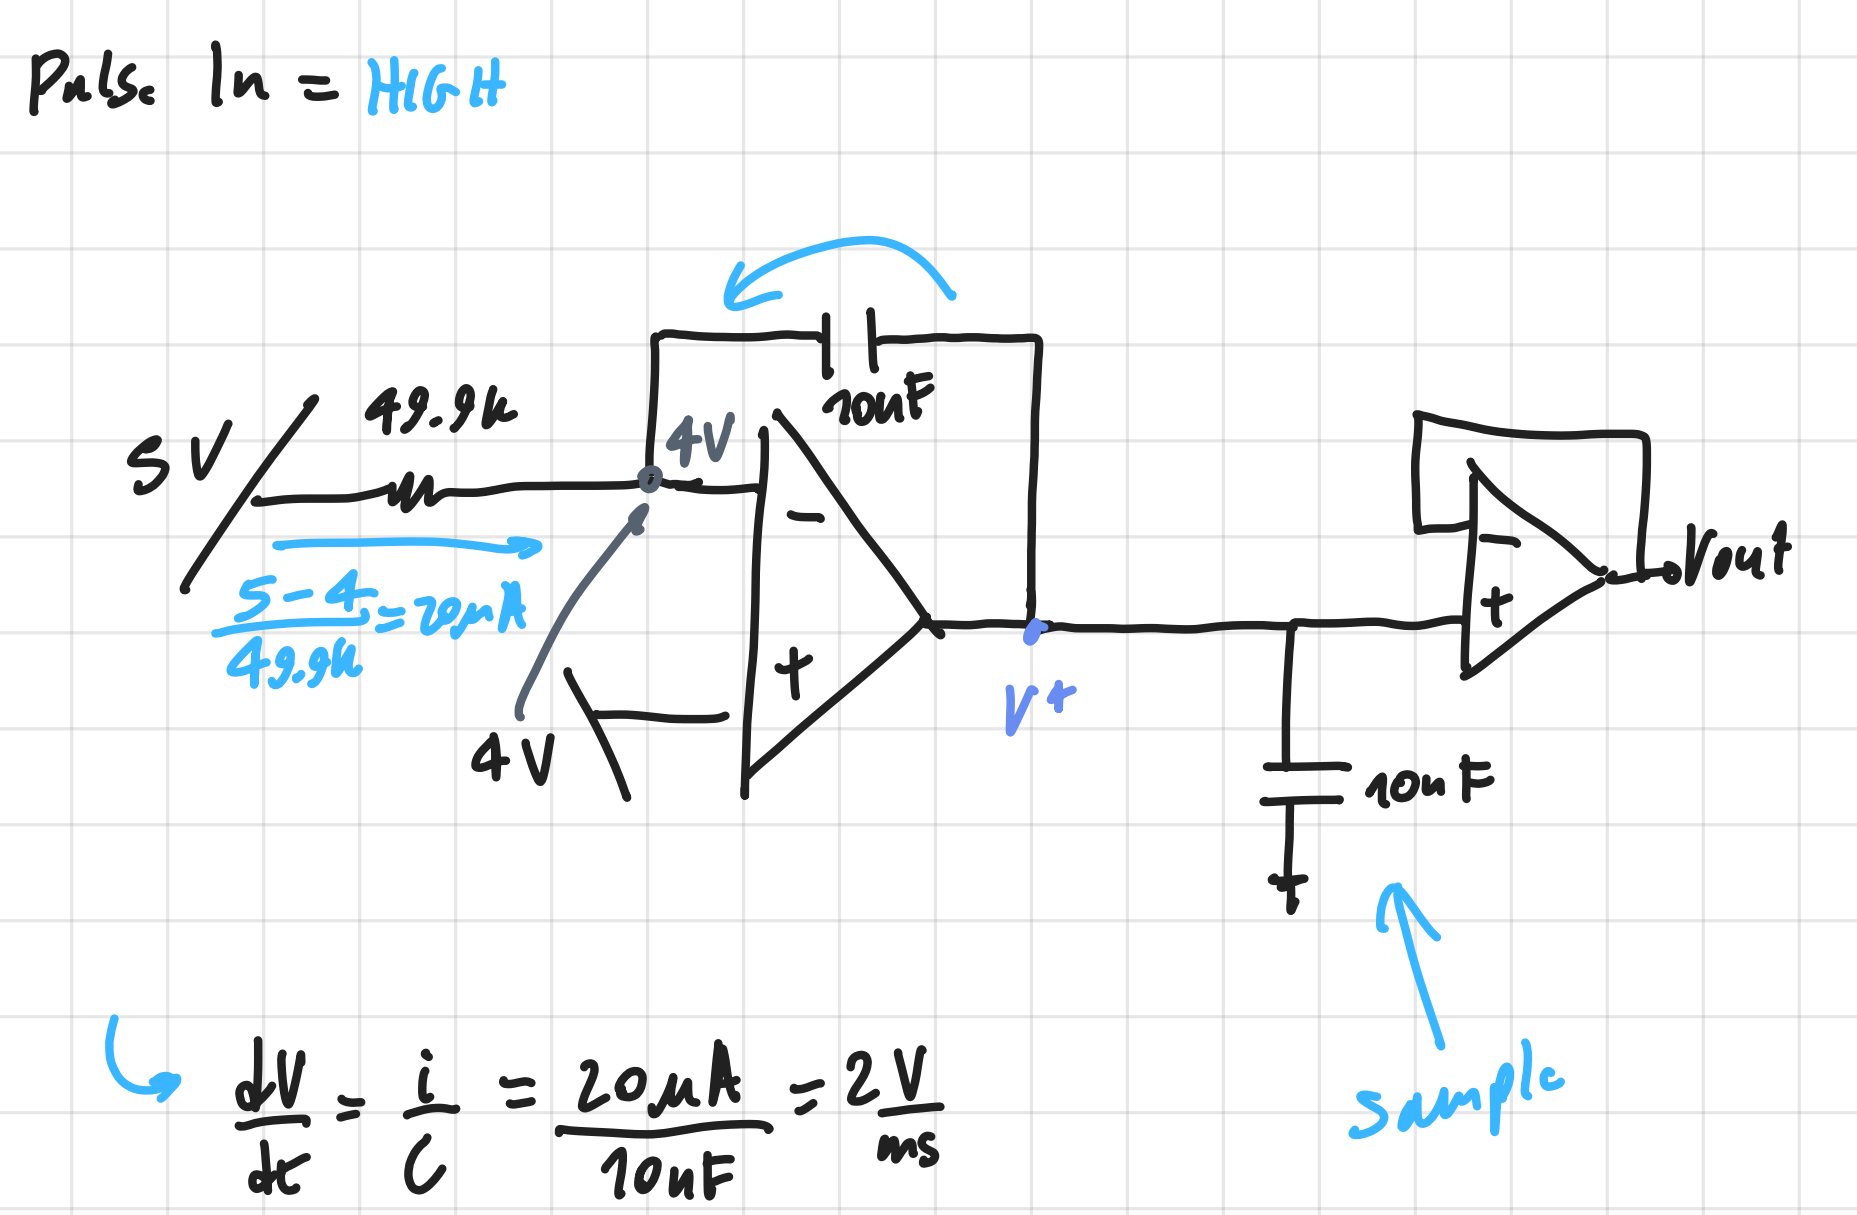 Pulse In = HIGH
5V
49.9k
4V
10nF
-
+
5-4/49.9k = 20µA
4V
V+
-
+
Vout
10nF
sample
dV/dt = i/C = 20µA/10nF = 2V/ms